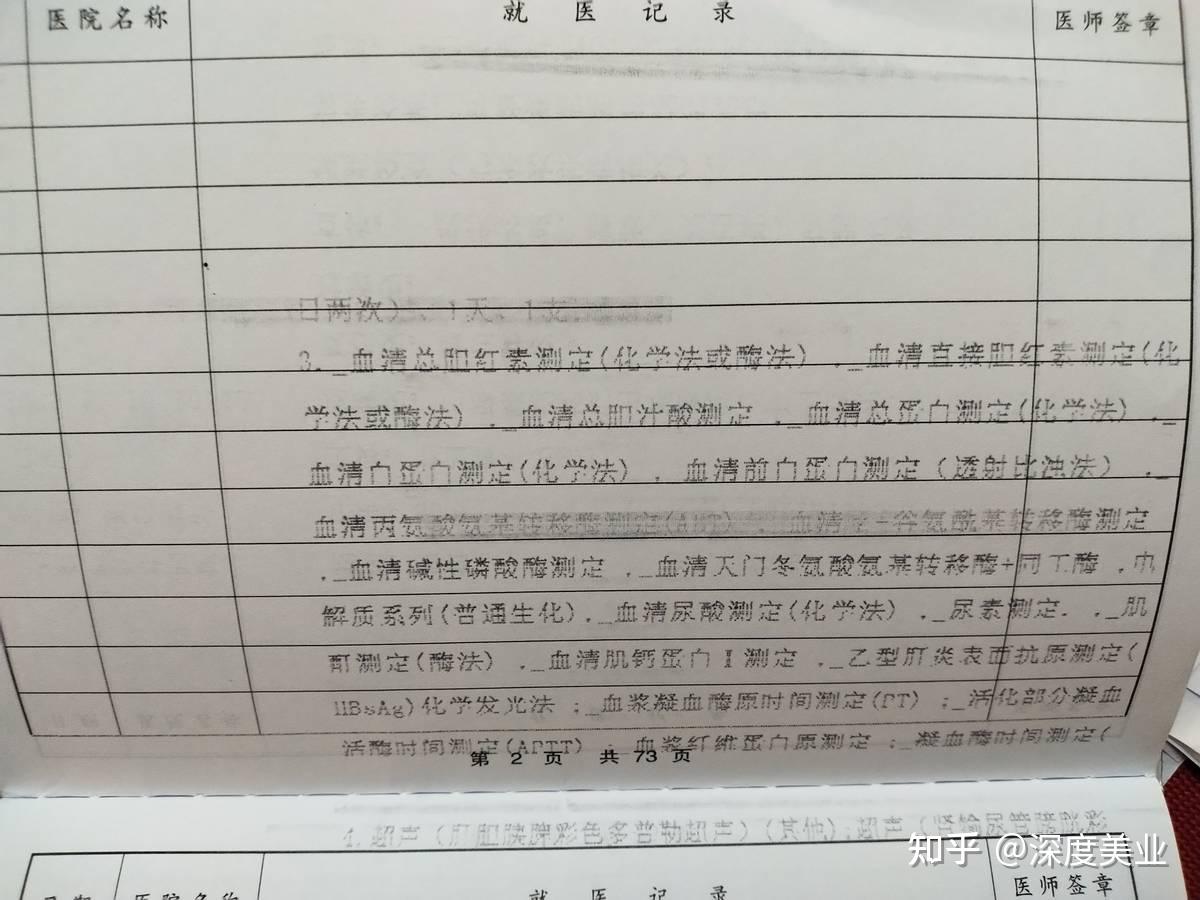 医院名称 就医记录 医师签章
日两次)、1天、1支
3._血清总胆红素测定(化学法或酶法)._血清直接胆红素测定(化
学法或酶法)._血清总胆汁酸测定._血清总蛋白测定(化学法)._
血清白蛋白测定(化学法).血清前白蛋白测定(透射比浊法)._
血清丙氨酸氨基转移酶测定 血清 谷氨酰基转移酶测定
._血清碱性磷酸酶测定._血清天门冬氨酸氨基转移酶+同工酶.
解质系列(普通生化)._血清尿酸测定(化学法)._尿素测定.._肌
酐测定(酶法)._血清肌钙蛋白I测定._乙型肝炎表面抗原测定(
HBsAg)化学发光法;_血浆凝血酶原时间测定(PT);_活化部分凝血
活酶时间测定(APTT);_血浆纤维蛋白原测定;_凝血酶时间测定(
第 2 页 共 73 页
4.超声(肝胆胰脾彩色多普勒超声)(其他);超声(
日期 医院名称 就医记录 医师签章
知乎 @深度美业